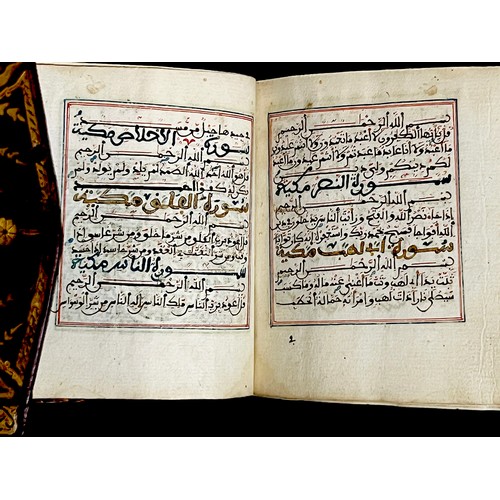 بسم الله الرحمن الرحيم
قل يأيها الكفرون لا أعبد ما تعبدون ولا
أنتم عبدون ما أعبد ولا
لكم دينكم ولي دين
سورة النصر مكية
بسم الله الرحمن الرحيم
إذا جاء نصر الله والفتح ورأيت الناس يدخلون
واستغفره إنه كان توابا
سورة أبي لهب مكية
بسم الله الرحمن الرحيم
تبت يدا أبي لهب وتب ما أغنى عنه ماله وما كسب
سيصلى نارا ذات لهب وامرأته حمالة الحطب
في جيدها حبل من مسد
سورة الإخلاص مكية
بسم الله الرحمن الرحيم
قل هو الله أحد الله الصمد لم يلد ولم يولد ولم
يكن له كفؤا أحد
سورة الفلق مكية
بسم الله الرحمن الرحيم
قل أعوذ برب الفلق من شر ما خلق ومن شر غاسق إذا وقب
ومن شر النفثت في العقد ومن شر حاسد إذا حسد
سورة الناس مكية
بسم الله الرحمن الرحيم
قل أعوذ برب الناس ملك الناس إله الناس من شر الوسواس